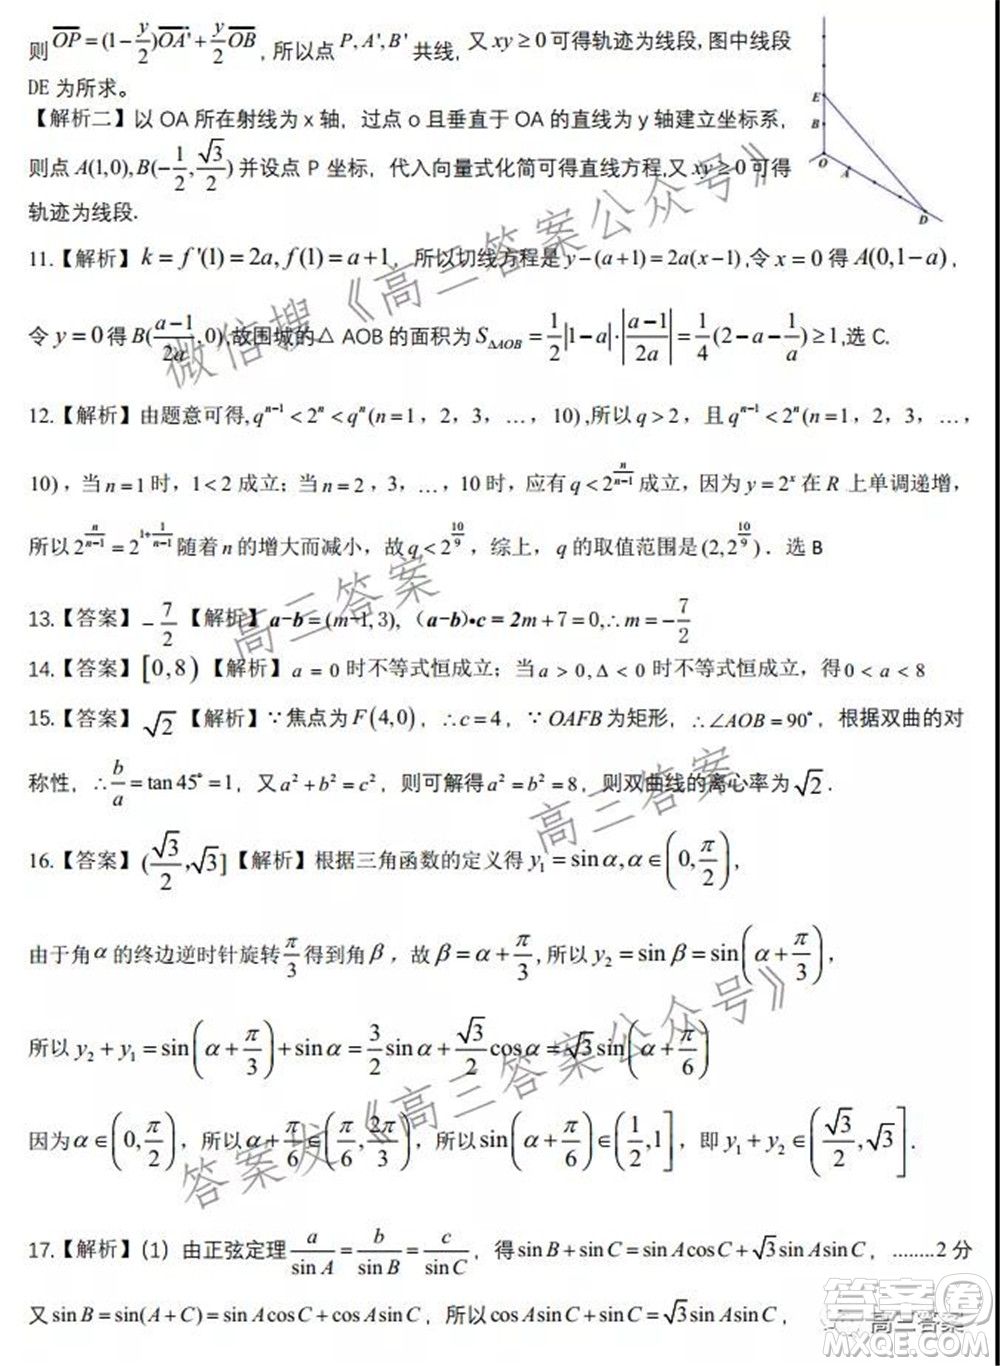 则 $\overline{OP}=(1-\frac{y}{2})\overline{OA'}+\frac{y}{2}\overline{OB}$，所以点 P, A', B' 共线，又 xy≥0 可得轨迹为线段，图中线段
DE 为所求。
【解析二】以 OA 所在射线为 x 轴，过点 o 且垂直于 OA 的直线为 y 轴建立坐标系，
则点 $A(1,0),B(-\frac{1}{2},\frac{\sqrt{3}}{2})$ 并设点 P 坐标，代入向量式化简可得直线方程,又 xy≥0 可得
轨迹为线段.
E
B
O
A
D
11.【解析】$k=f'(1)=2a,f(1)=a+1$，所以切线方程是 $y-(a+1)=2a(x-1)$,令 $x=0$ 得 $A(0,1-a)$，
令 $y=0$ 得 $B(\frac{a-1}{2a},0)$,故围城的△ AOB 的面积为 $S_{\Delta AOB}=\frac{1}{2}|1-a|\cdot\left|\frac{a-1}{2a}\right|=\frac{1}{4}(2-a-\frac{1}{a})\geq 1$,选 C.
12.【解析】由题意可得, $q^{n-1}<2^n<q^n(n=1，2，3，…，10)$,所以 $q>2$，且 $q^{n-1}<2^n(n=1，2，3，…，$
10)，当 $n=1$ 时，$1<2$ 成立；当 $n=2，3，…，10$ 时，应有 $q<2^{\frac{n}{n-1}}$ 成立，因为 $y=2^x$ 在 R 上单调递增，
所以 $2^{\frac{n}{n-1}}=2^{1+\frac{1}{n-1}}$ 随着 n 的增大而减小，故 $q<2^{\frac{10}{9}}$，综上，q 的取值范围是 $(2,2^{\frac{10}{9}})$．选 B
13.【答案】$-\frac{7}{2}$【解析】$a-b=(m-1,3),（a-b)•c=2m+7=0,∴m=-\frac{7}{2}$
14.【答案】$[0,8)$【解析】$a=0$ 时不等式恒成立；当 $a>0,Δ<0$ 时不等式恒成立，得 $0<a<8$
15.【答案】$\sqrt{2}$【解析】∵焦点为 $F(4,0)$，∴$c=4$，∵OAFB 为矩形，∴∠AOB=90°，根据双曲的对
称性，∴$\frac{b}{a}=\tan 45°=1$，又 $a^2+b^2=c^2$，则可解得 $a^2=b^2=8$，则双曲线的离心率为 $\sqrt{2}$．
16.【答案】$(\frac{\sqrt{3}}{2},\sqrt{3}]$【解析】根据三角函数的定义得 $y_1=\sin α,α∈\left(0,\frac{π}{2}\right)$，
由于角 α 的终边逆时针旋转 $\frac{π}{3}$ 得到角 β，故 $β=α+\frac{π}{3}$,所以 $y_2=\sin β=\sin\left(α+\frac{π}{3}\right)$，
所以 $y_2+y_1=\sin\left(α+\frac{π}{3}\right)+\sin α=\frac{3}{2}\sin α+\frac{\sqrt{3}}{2}\cos α=\sqrt{3}\sin\left(α+\frac{π}{6}\right)$
因为 $α∈\left(0,\frac{π}{2}\right)$，所以 $α+\frac{π}{6}∈\left(\frac{π}{6},\frac{2π}{3}\right)$，所以 $\sin\left(α+\frac{π}{6}\right)∈\left(\frac{1}{2},1\right]$，即 $y_1+y_2∈\left(\frac{\sqrt{3}}{2},\sqrt{3}\right]$．
17.【解析】(1）由正弦定理 $\frac{a}{\sin A}=\frac{b}{\sin B}=\frac{c}{\sin C}$，得 $\sin B+\sin C=\sin A\cos C+\sqrt{3}\sin A\sin C$，........2 分
又 $\sin B=\sin(A+C)=\sin A\cos C+\cos A\sin C$，所以 $\cos A\sin C+\sin C=\sqrt{3}\sin A\sin C$，
微信搜《高三答案公众号》
高三答案
高三答案
答案发《高三答案公众号》
答案圈
高三答案